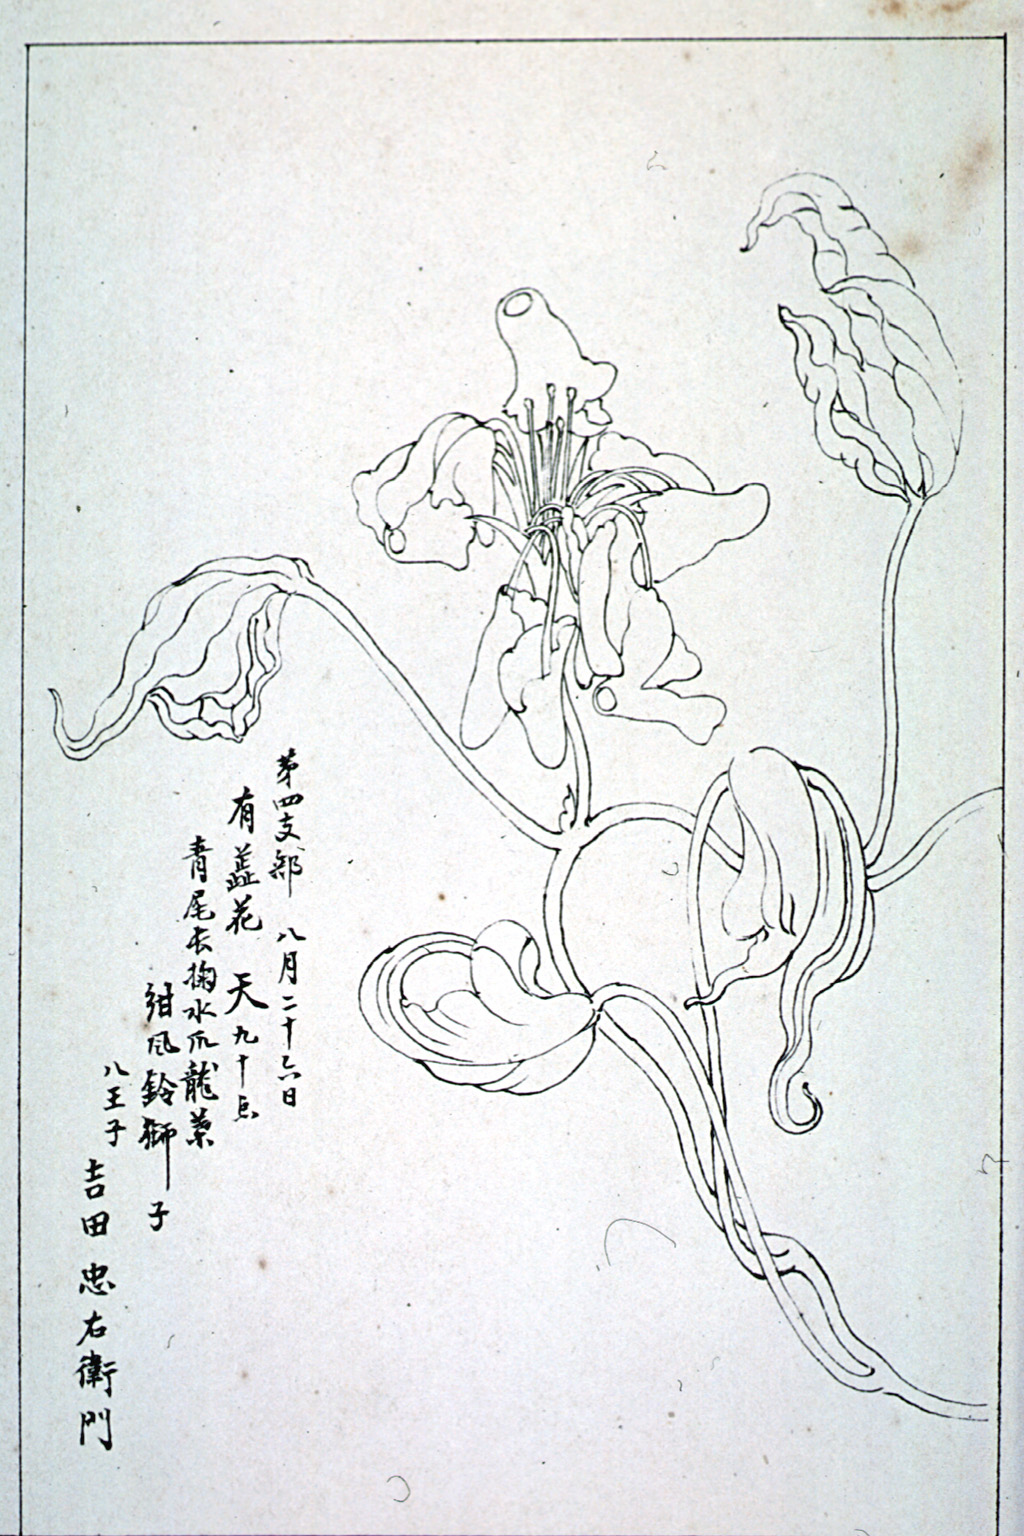 第四支部 八月二十六日
有蘂花 天九十点
青尾長掬水爪龍葉
紺風鈴獅子
八王子 吉田忠右衛門